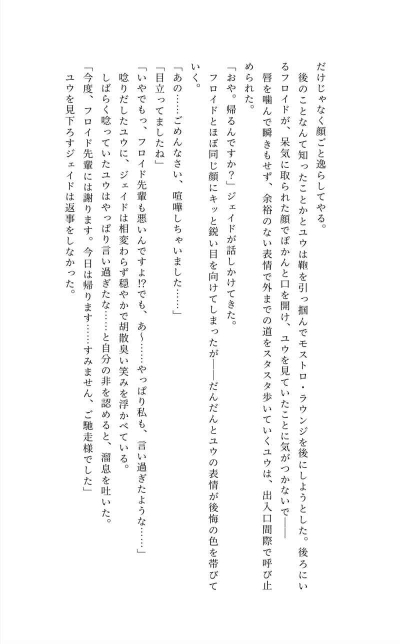 だけじゃなく顔ごと逸らしてやる。
　後のことなんて知ったことかとユウは鞄を引っ掴んでモストロ・ラウンジを後にしようとした。後ろにい
るフロイドが、呆気に取られた顔でぽかんと口を開け、ユウを見ていたことに気がつかないで――
　唇を噛んで瞬きもせず、余裕のない表情で外までの道をスタスタ歩いていくユウは、出入口間際で呼び止
められた。
「おや。帰るんですか？」ジェイドが話しかけてきた。
　フロイドとほぼ同じ顔にキッと鋭い目を向けてしまったが――だんだんとユウの表情が後悔の色を帯びて
いく。
「あの……ごめんなさい、喧嘩しちゃいました……」
「目立ってましたね」
「いやでもっ、フロイド先輩も悪いんですよ!?でも、あ～……やっぱり私も、言い過ぎたような……」
　唸りだしたユウに、ジェイドは相変わらず穏やかで胡散臭い笑みを浮かべている。
　しばらく唸っていたユウはやっぱり言い過ぎたな……と自分の非を認めると、溜息を吐いた。
「今度、フロイド先輩には謝ります。今日は帰ります……すみません、ご馳走様でした」
　ユウを見下ろすジェイドは返事をしなかった。